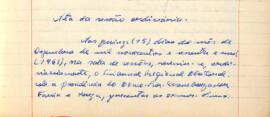 Ata da sessão ordinária.
Aos quinze (15) dias do mês de
Dezembro de mil novecentos e sessenta e um
(1961), na sala de sessões, reuniu-se, ordi-
nariamente, o Tribunal Regional Eleitoral,
sob a presidência do Exmo. Snr.
Faria e Souza, presentes os exmos. Snrs.